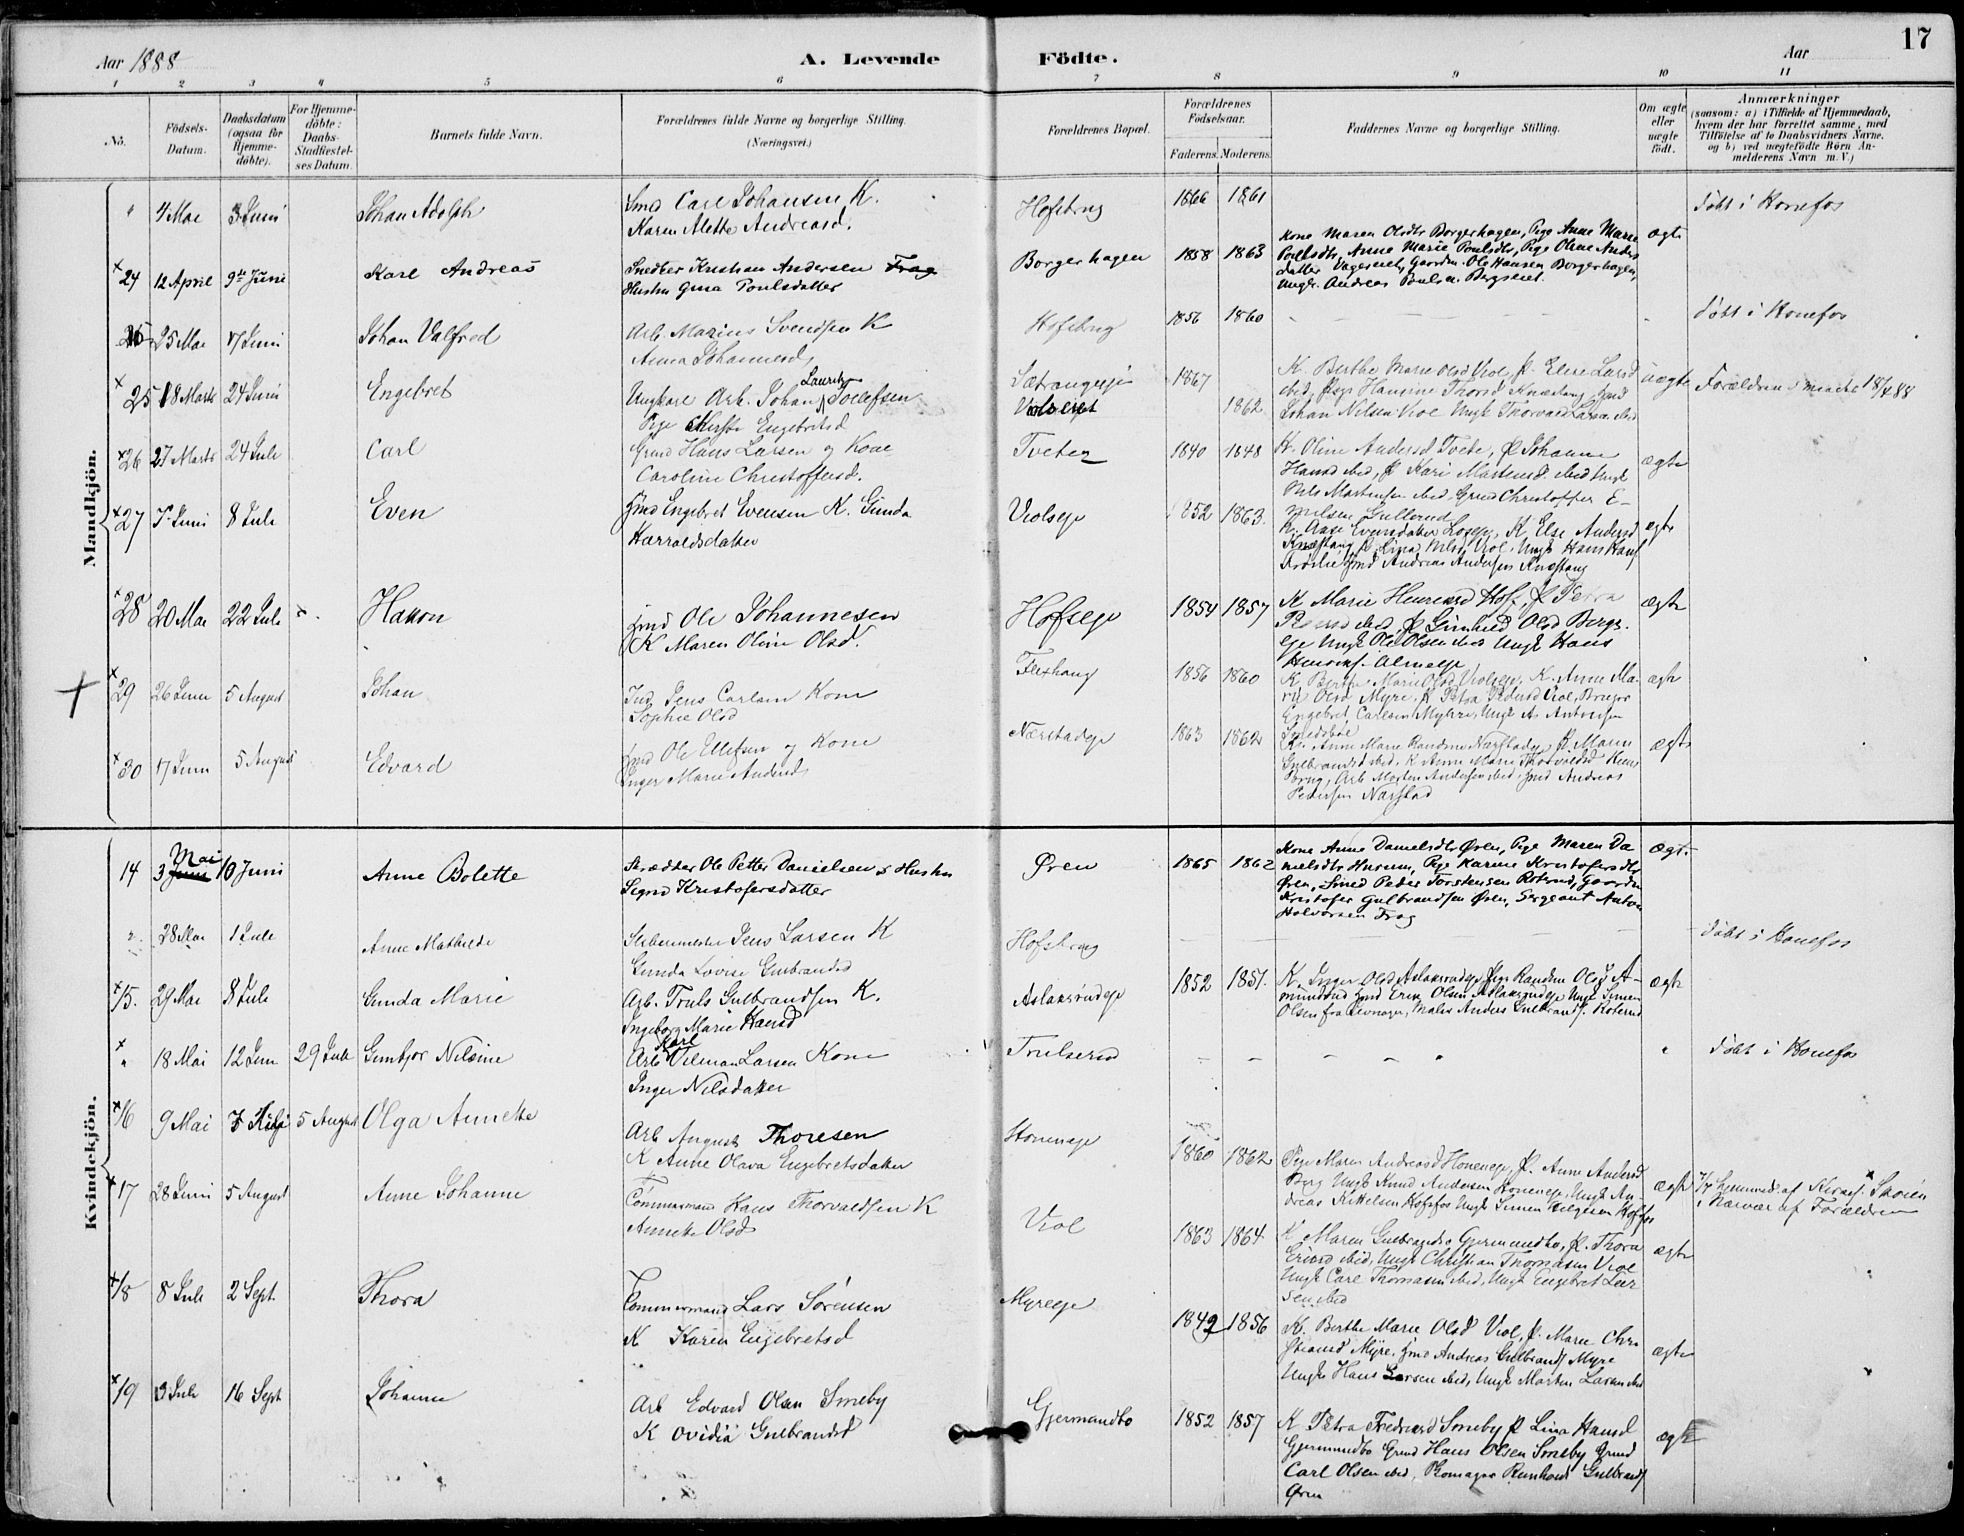 Aar 1888
A. Levende Födte.
Aar
17
1 2 3 4 5 6 7 8 9 10 11
No.
Födsels-Datum.
Daabsdatum (ogsaa for Hjemme-döbte).
For Hjemme-döbte: Daabs-Stadfæstel-ses Datum.
Barnets fulde Navn.
Forældrenes fulde Navne og borgerlige Stilling. (Næringsvei.)
Forældrenes Bopæl.
Forældrenes Födselsaar.
Faderens. Moderens.
Faddernes Navne og borgerlige Stilling.
Om ægte eller uægte födt.
Anmærkninger
(saasom: a) i Tilfælde af Hjemmedaab,
hvem der har forrettet samme, med
Tilföielse af to Daabsvidners Navne.
og b) ved uægtefödte Börn An-
melderens Navn m. V.)
Mandkjön.
" 4 Mai 3 Juni Johan Adolph
Smd Carl Johansen K.
Karen Alette Andreasd.
Hofsbrug 1866 1861
Döbt i Honefos
24 12 April 9de Juni Karl Andreas
Snedker Kristian Andersen Frog
Hustru Gina Poulsdatter
Borgerhagen 1858 1863
Kone Maren Olsdtr Borgerhagen, Pige Anne Marie
Poulsdtr, Anne Marie Poulsdtr, Pige Oline Anders
datter Vagerseiet, Gaardm. Ole Hansen Borgerhagen,
Ungk. Andreas Poulsen Bergseiet.
ægte
25 Mai 17 Juni Johan Valfred
Arb. Marius Svendsen K
Anna Johannesd
Hofsbrug 1856 1860
Döbt i Honefos
25 18 Marts 24 Juni Engebret
Ungkarl Arb. Johan Lauritz Tollefsen
Pige Kirste Engebretsd
Sætrangeje
Violseiet
1867 1862
K. Berthe Marie Olsd Viol, P. Eline Larsd
ibid, Pige Hansine Thorsd Knæstang, Smd
Johan Nilsen Viol Ungk Thorvald Larsen ibid
uægte
Forældrene 18/4 88
26 27 Marts 24 Juli Carl
Grmd Hans Larsen og Kone
Caroline Christoffersd.
Tveten 1840 1848
K. Oline Andersd Tvete, P Johanne
Hansd ibid, P Kari Martensd. ibid Ungk
Nils Martensen ibid, Grmd Christoffer E-
milsen Gullerud
ægte
27 5 Juni 8 Juli Even
Jmd Engebret Evensen K. Gunda
Harraldsdatter
Violseje 1852 1863.
K. Aase Evensdatter Loseje, K Else Andersd
Knæstang P. Lina Nilsd Viol, Ungk Hans Hans
Frøslie Jmd Andreas Andersen Knæstang
ægte
28 20 Mai 22 Juli Hakon
Jmd Ole Johannesen
K Maren Oline Olsd.
Hofseje 1854 1857
K Marie Henriksd Hof, P Petra
ibid, P Gunhild Olsd Bergs.
eje Ungk Ole Olsen ibid Ungk Hans
Henriks. Almeje
ægte
29 26 Juni 5 August Johan
Ind Jens Carlsen Kone
Sophie Olsd
Flexhaug 1856 1860
K Berthe Marie Olsd Violseje, K. Anne Ma-
rie Olsd Myre, P Petra Pedersd Viol, Brufor
Engebret Carlsen Myhre, Ungk As Antonsen
Smedsbøle
ægte
30 17 Juni 5 August Edvard
Jmd Ole Ellefsen og Kone
Inger Marie Andersd
Nærstadeje 1863 1862
K. Anne Marie Randine Nærstadeje P. Maren
Gulbrandsd ibid, K Anne Marie Thorvaldsd Hens
Brug, Arb Morten Andersen ibid, Smd Andreas
Pedersen Nærstad
ægte
Kvindekjön.
14 3 Mai Juni 10 Juni Anne Bolette
Skrædder Ole Petter Danielsen & Hustru
Signe Kristofersdatter
Øren 1865 1862
Kone Anne Danielsdtr Øren, Pige Maren Da
nielsdtr Hurum, Pige Karine Kristofersdtr
Øren, Smed Peder Torstensen Roterud, Gaardm
Kristofer Gulbrandsen Øren, Sergeant Anton
Halvorsen Frog
ægte
" 28 Mai 1 Juli Anne Mathilde
Slibermester Jens Larsen K
Gunda Lovise Gulbrandsd
Hofsbrug
Döbt i Honefos
15. 29 Mai 8 Juli Gunda Marie
Arb. Truls Gulbrandsen K.
Ingeborg Marie Hansd
Aslaksrudeje 1852 1851.
K. Inger Olsd Aslaksrudeje Pige Randine Olsd A-
mundrud Jmd Erik Olsen Aslaksrudeje Ungk Simen
Olsen fra Jevnager, Maler Anders Gulbrands. Roterud
ægte
" 18 Mai 12 Juni 29 Juli Gunbjør Nilsine
Arb Karl Vilman Larsen Kone
Inger Nilsdatter
Trulserud
Döbt i Honefos
16 9 Mai 7 Juli 5 August Olga Annette
Arb August Thoresen
K Anne Olava Engebretsdatter
Honeneje 1860 1862
Pige Maren Andreasd Honeneje, P. Anne Andersd
Berg Ungk Knud Andersen Honeneje, Ungk An-
dreas Kittelsen Hofsfos Ungk Simen Helgesen Hofsfos
ægte
7/7 hjemmedt af Kirkes. Skøien
i Nærvær af Forældrene
17 28 Juni 5 August Anne Johanne
Tömmermand Hans Thorvaldsen K
Annette Olsd
Viol 1863 1864
K Maren Gulbrandsd Gjermundbo, P. Thora
Ericsd ibid, Ungk Christian Thomasen Viol
Ungk Carl Thomasen ibid, Ungk Engebret Lar
sen ibid
ægte
18 8 Juli 2 Sept. Thora
Tömmermand Lars Sörensen
K Karen Engebretsd
Myreeje 1842 1856
K. Berthe Marie Olsd Viol, P. Marie Chri
stiansd Myre. Jmd Andreas Gulbrands Myre
Ungk Hans Larsen ibid, Ungk Martin Larsen ibid
ægte
19 3 Juli 16 Sept Johanne
Arb Edvard Olsen Smeby
K Ovidia Gulbrandsd
Gjermundbo 1852 1857
K Petra Fredriksd Smeby P Lina Hansd
Gjermundbo Grmd Hans Olsen Smeby Grmd
Carl Olsen ibid, Skomager Reinhard Gulbrands
Øren
ægte